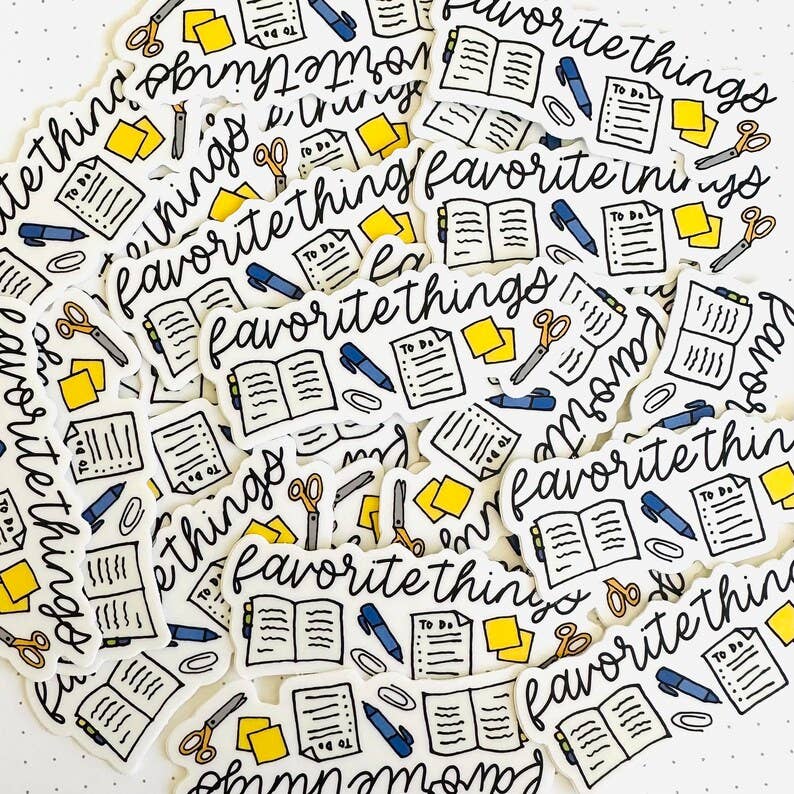 favorite things
TO DO
favorite things
TO DO
favorite things
TO DO
things
TO DO
favorite things
TO DO
favorite things
TO DO
favorite things
TO DO
favorite things
TO DO
favorite things
TO DO
favorite things
TO DO
things
TO DO
TO DO
favorite